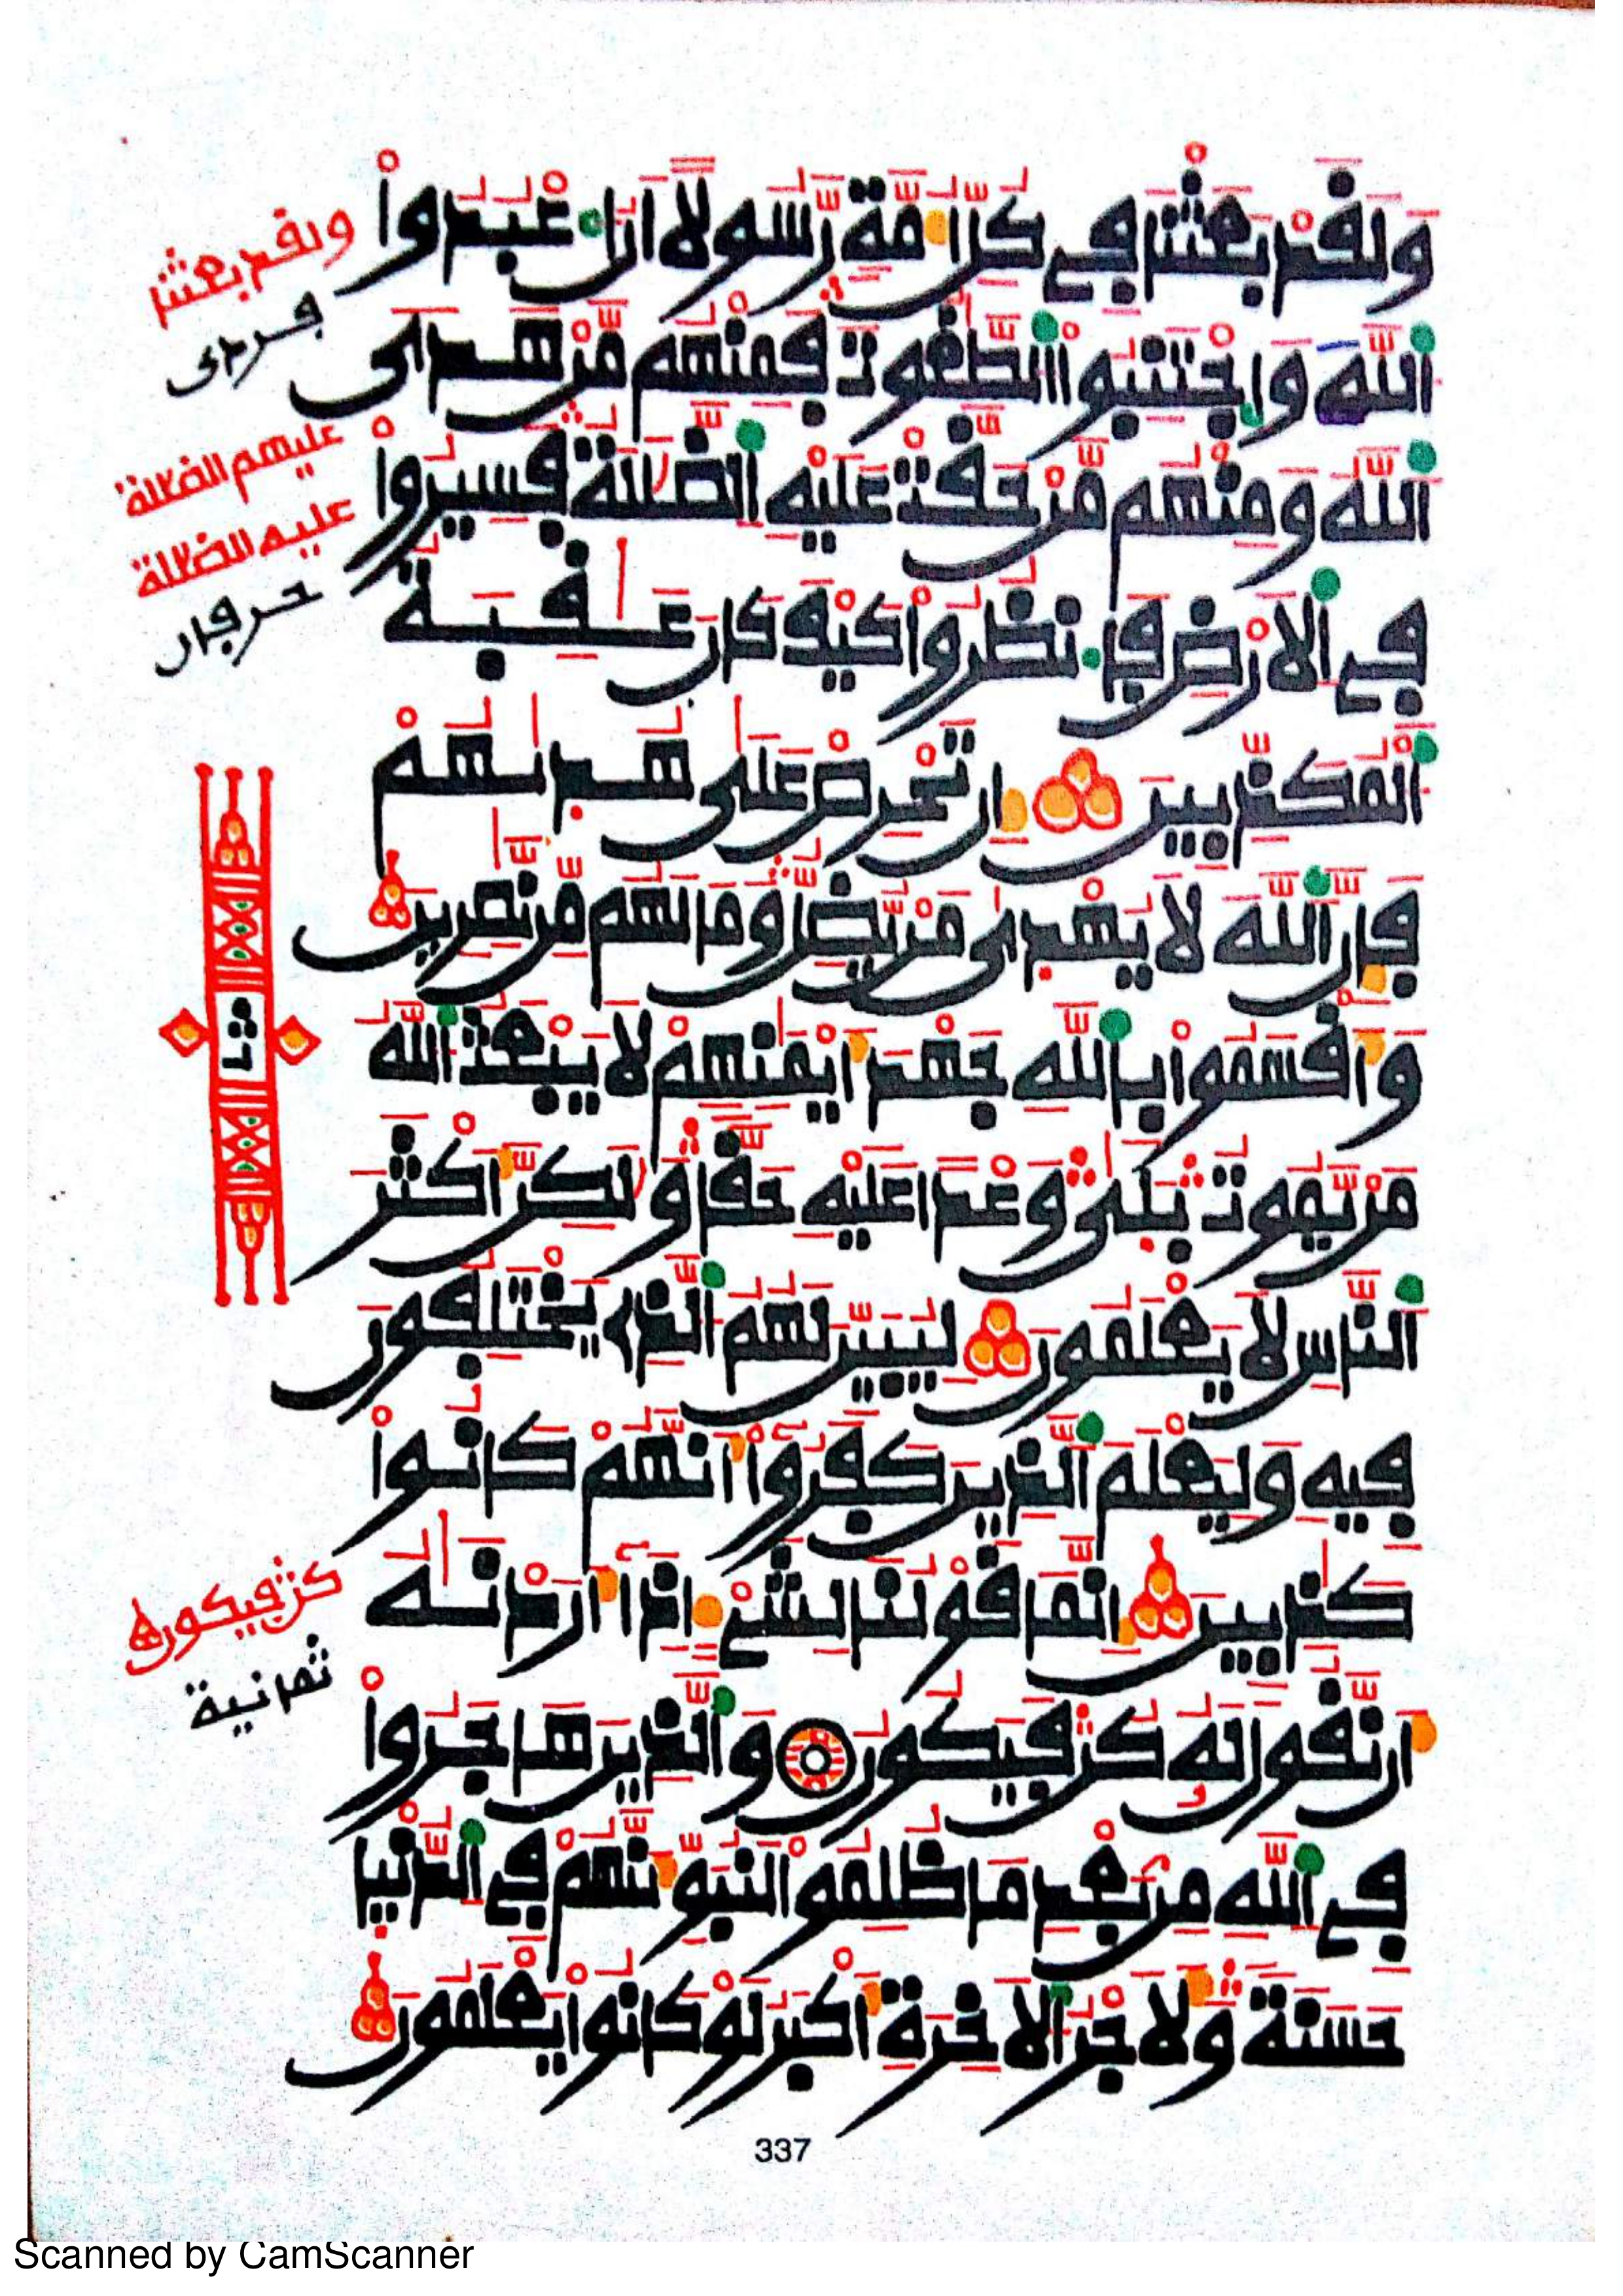 وَلَقَدْ بَعَثْنَا فِے كُلِّ أُمَّةٖ رَّسُولًا اَنُ اُعْبُدُواْ
اُللَّهَ وَاجْتَنِبُواْ اُلطَّٰغُوتَ فَمِنْهُم مَّنْ هَدَى
اَللَّهُ وَمِنْهُم مَّنْ حَقَّتْ عَلَيْهِ اِلضَّلَٰلَةُ فَسِيرُواْ
فِے اِلَارْضِ فَانظُرُواْ كَيْفَ كَانَ عَٰقِبَةُ
اُلْمُكَذِّبِينَ إِن تَحْرِصْ عَلَىٰ هُدَىٰهُمْ
فَإِنَّ اَللَّهَ لَا يُهْدَىٰ مَنْ يُّضِلُّ وَمَا لَهُم مِّن نَّٰصِرِينَ
وَأَقْسَمُواْ بِاللَّهِ جَهْدَ أَيْمَٰنِهِمْ لَا يَبْعَثُ اُللَّهُ
مَنْ يَّمُوتُ بَلَىٰ وَعْدًا عَلَيْهِ حَقًّا وَلَٰكِنَّ أَكْثَرَ
اَلنَّاسِ لَا يَعْلَمُونَ لِيُبَيِّنَ لَهُمُ اُلذِے يَخْتَلِفُونَ
فِيهِ وَلِيَعْلَمَ اَلذِينَ كَفَرُواْ أَنَّهُمْ كَانُواْ
كَٰذِبِينَ إِنَّمَا قَوْلُنَا لِشَےْءٍ اِذَا أَرَدْنَٰهُ
أَن نَّقُولَ لَهُۥ كُن فَيَكُونُ وَالذِينَ هَاجَرُواْ
فِے اِللَّهِ مِنۢ بَعْدِ مَا ظُلِمُواْ لَنُبَوِّئَنَّهُمْ فِے اِلدُّنْيَا
حَسَنَةً وَلَأَجْرُ اُلَاخِرَةِ أَكْبَرُ لَوْ كَانُواْ يَعْلَمُونَ
ولقد بعثنا
عليهم الضلالة
عليه الضلالة
ثمن
كن فيكون
ثمانية
337
Scanned by CamScanner